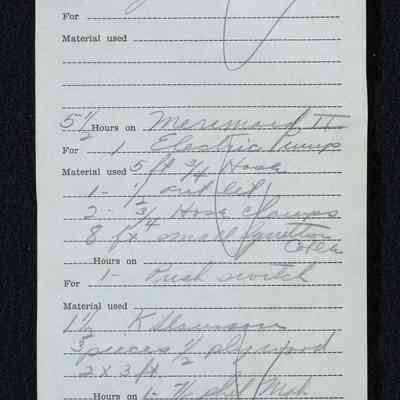 For
Material used
5 1/2 Hours on Mermaid II
For 1 Electric Pumps
Material used 5 ft 3/4 Hose
1 - 1/2 outlet
2 - 3/4 Hose clamps
8 ft small Ignition
Cable
Hours on
For 1 - Push switch
Material used
1 1/2
3 pieces 1/2 plywood
2 x 3 ft.
Hours on 1-